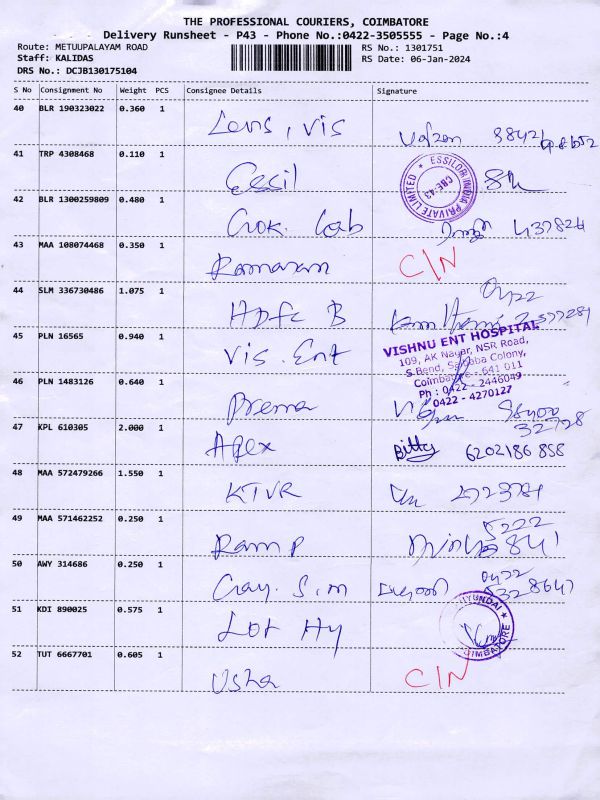 THE PROFESSIONAL COURIERS, COIMBATORE
Delivery Runsheet - P43 - Phone No.:0422-3505555 - Page No.:4
Route: METUUPALAYAM ROAD
RS No.: 1301751
Staff: KALIDAS
RS Date: 06-Jan-2024
DRS No.: DCJB130175104
S No Consignment No Weight PCS Consignee Details Signature
40 BLR 190323022 0.360 1 Lens, vis
41 TRP 4308468 0.110 1 Cecil
ESSILOR INDIA PRIVATE LIMITED
CBE-43
42 BLR 1300259809 0.480 1 Crok. Lab 437824
43 MAA 108074468 0.350 1 Ramaram C/N
44 SLM 336730486 1.075 1 Hdfc B
45 PLN 16565 0.940 1 Vis. Ent
VISHNU ENT HOSPITAL
109, AK Nagar, NSR Road,
S Bend, Saibaba Colony,
Coimbatore - 641 011
Ph : 0422 - 2446049
0422 - 4270127
46 PLN 1483126 0.640 1 Prema
47 KPL 610305 2.000 1 Apex Bitty 6202186858
48 MAA 572479266 1.550 1 KTVR
49 MAA 571462252 0.250 1 Ram P
50 AWY 314686 0.250 1 Gay. S.m
51 KDI 890025 0.575 1 Lot Hy
HYUNDAI
COIMBATORE
52 TUT 6667701 0.605 1 Usha C/N